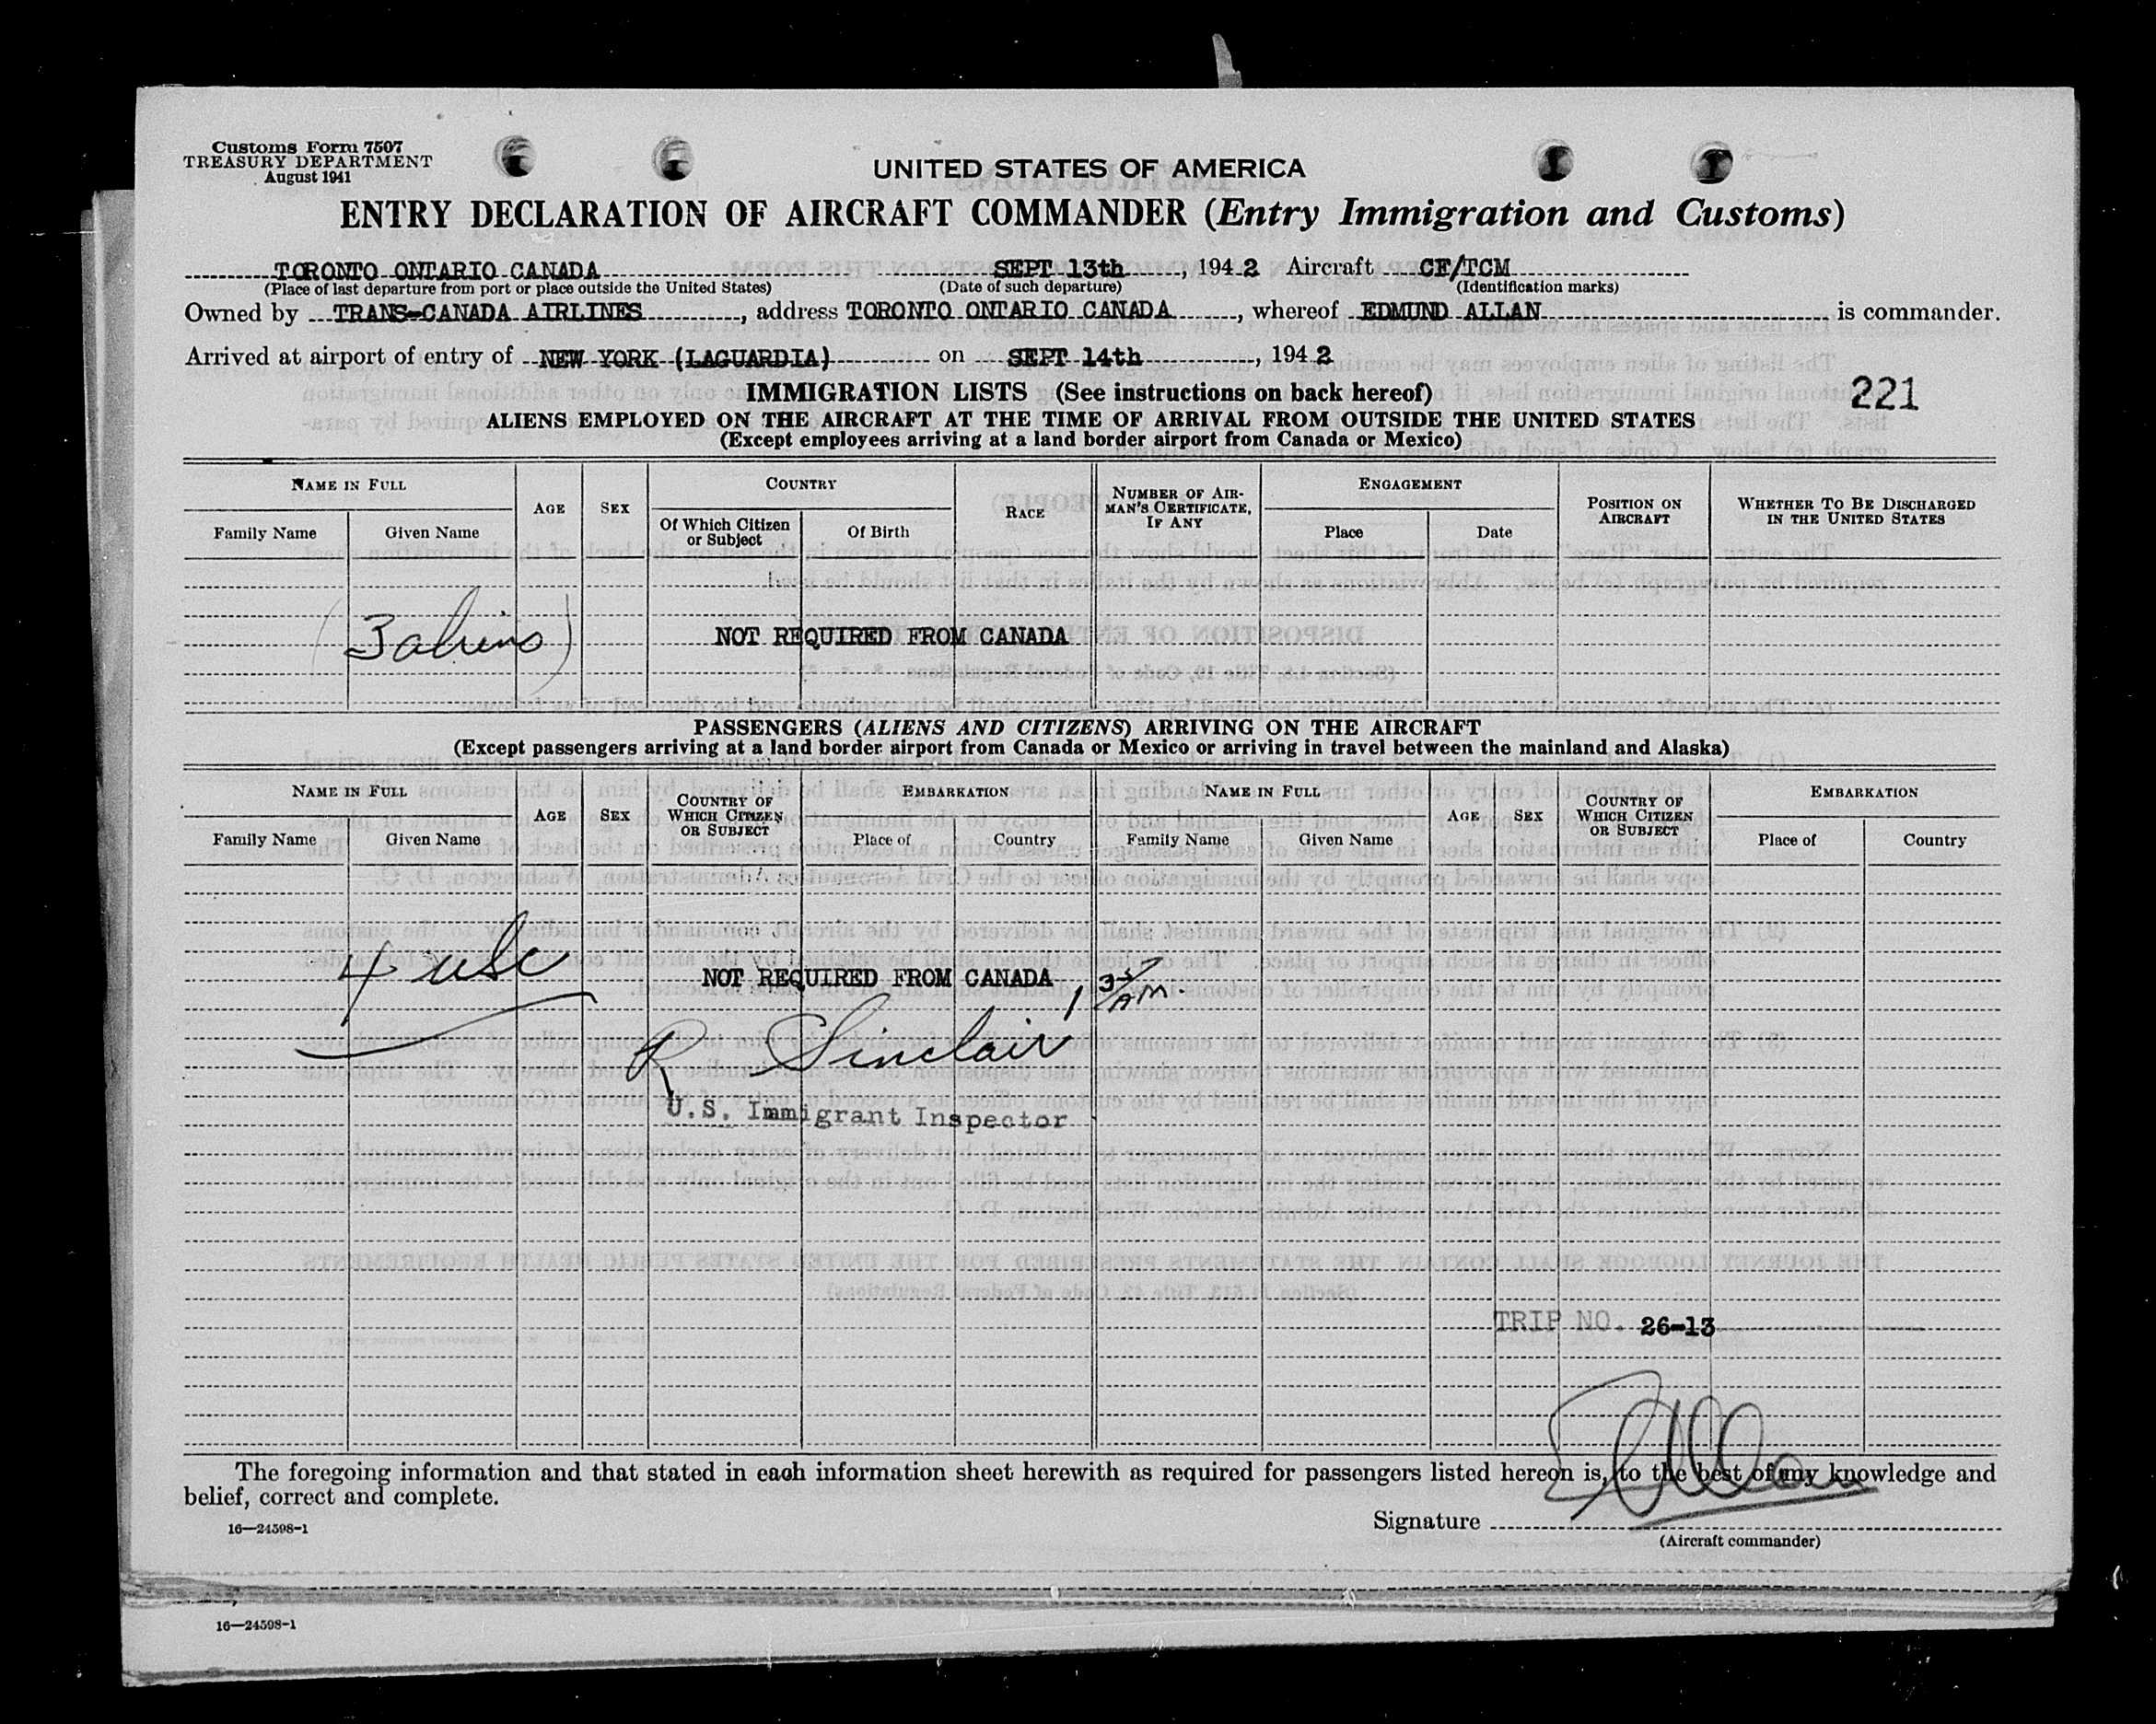 Customs Form 7507
TREASURY DEPARTMENT
August 1941
UNITED STATES OF AMERICA
ENTRY DECLARATION OF AIRCRAFT COMMANDER (Entry Immigration and Customs)
TORONTO ONTARIO CANADA SEPT 13th, 1942 Aircraft CF/TCM
(Place of last departure from port or place outside the United States) (Date of such departure) (Identification marks)
Owned by TRANS-CANADA AIRLINES, address TORONTO ONTARIO CANADA, whereof EDMUND ALLAN is commander.
Arrived at airport of entry of NEW YORK (LAGUARDIA) on SEPT 14th, 1942
IMMIGRATION LISTS (See instructions on back hereof)
221
ALIENS EMPLOYED ON THE AIRCRAFT AT THE TIME OF ARRIVAL FROM OUTSIDE THE UNITED STATES
(Except employees arriving at a land border airport from Canada or Mexico)
NAME IN FULL
Family Name
Given Name
AGE
SEX
COUNTRY
Of Which Citizen or Subject
Of Birth
RACE
NUMBER OF AIRMAN'S CERTIFICATE, IF ANY
ENGAGEMENT
Place
Date
POSITION ON AIRCRAFT
WHETHER TO BE DISCHARGED IN THE UNITED STATES
(3 aliens) NOT REQUIRED FROM CANADA
PASSENGERS (ALIENS AND CITIZENS) ARRIVING ON THE AIRCRAFT
(Except passengers arriving at a land border airport from Canada or Mexico or arriving in travel between the mainland and Alaska)
NAME IN FULL
Family Name
Given Name
AGE
SEX
COUNTRY OF WHICH CITIZEN OR SUBJECT
EMBARKATION
Place of
Country
NAME IN FULL
Family Name
Given Name
AGE
SEX
COUNTRY OF WHICH CITIZEN OR SUBJECT
EMBARKATION
Place of
Country
4 usc NOT REQUIRED FROM CANADA
R Sinclair
U.S. Immigrant Inspector
TRIP NO. 26-13
The foregoing information and that stated in each information sheet herewith as required for passengers listed hereon is, to the best of my knowledge and
belief, correct and complete.
16—24598-1
Signature E Allan
(Aircraft commander)
16—24598-1